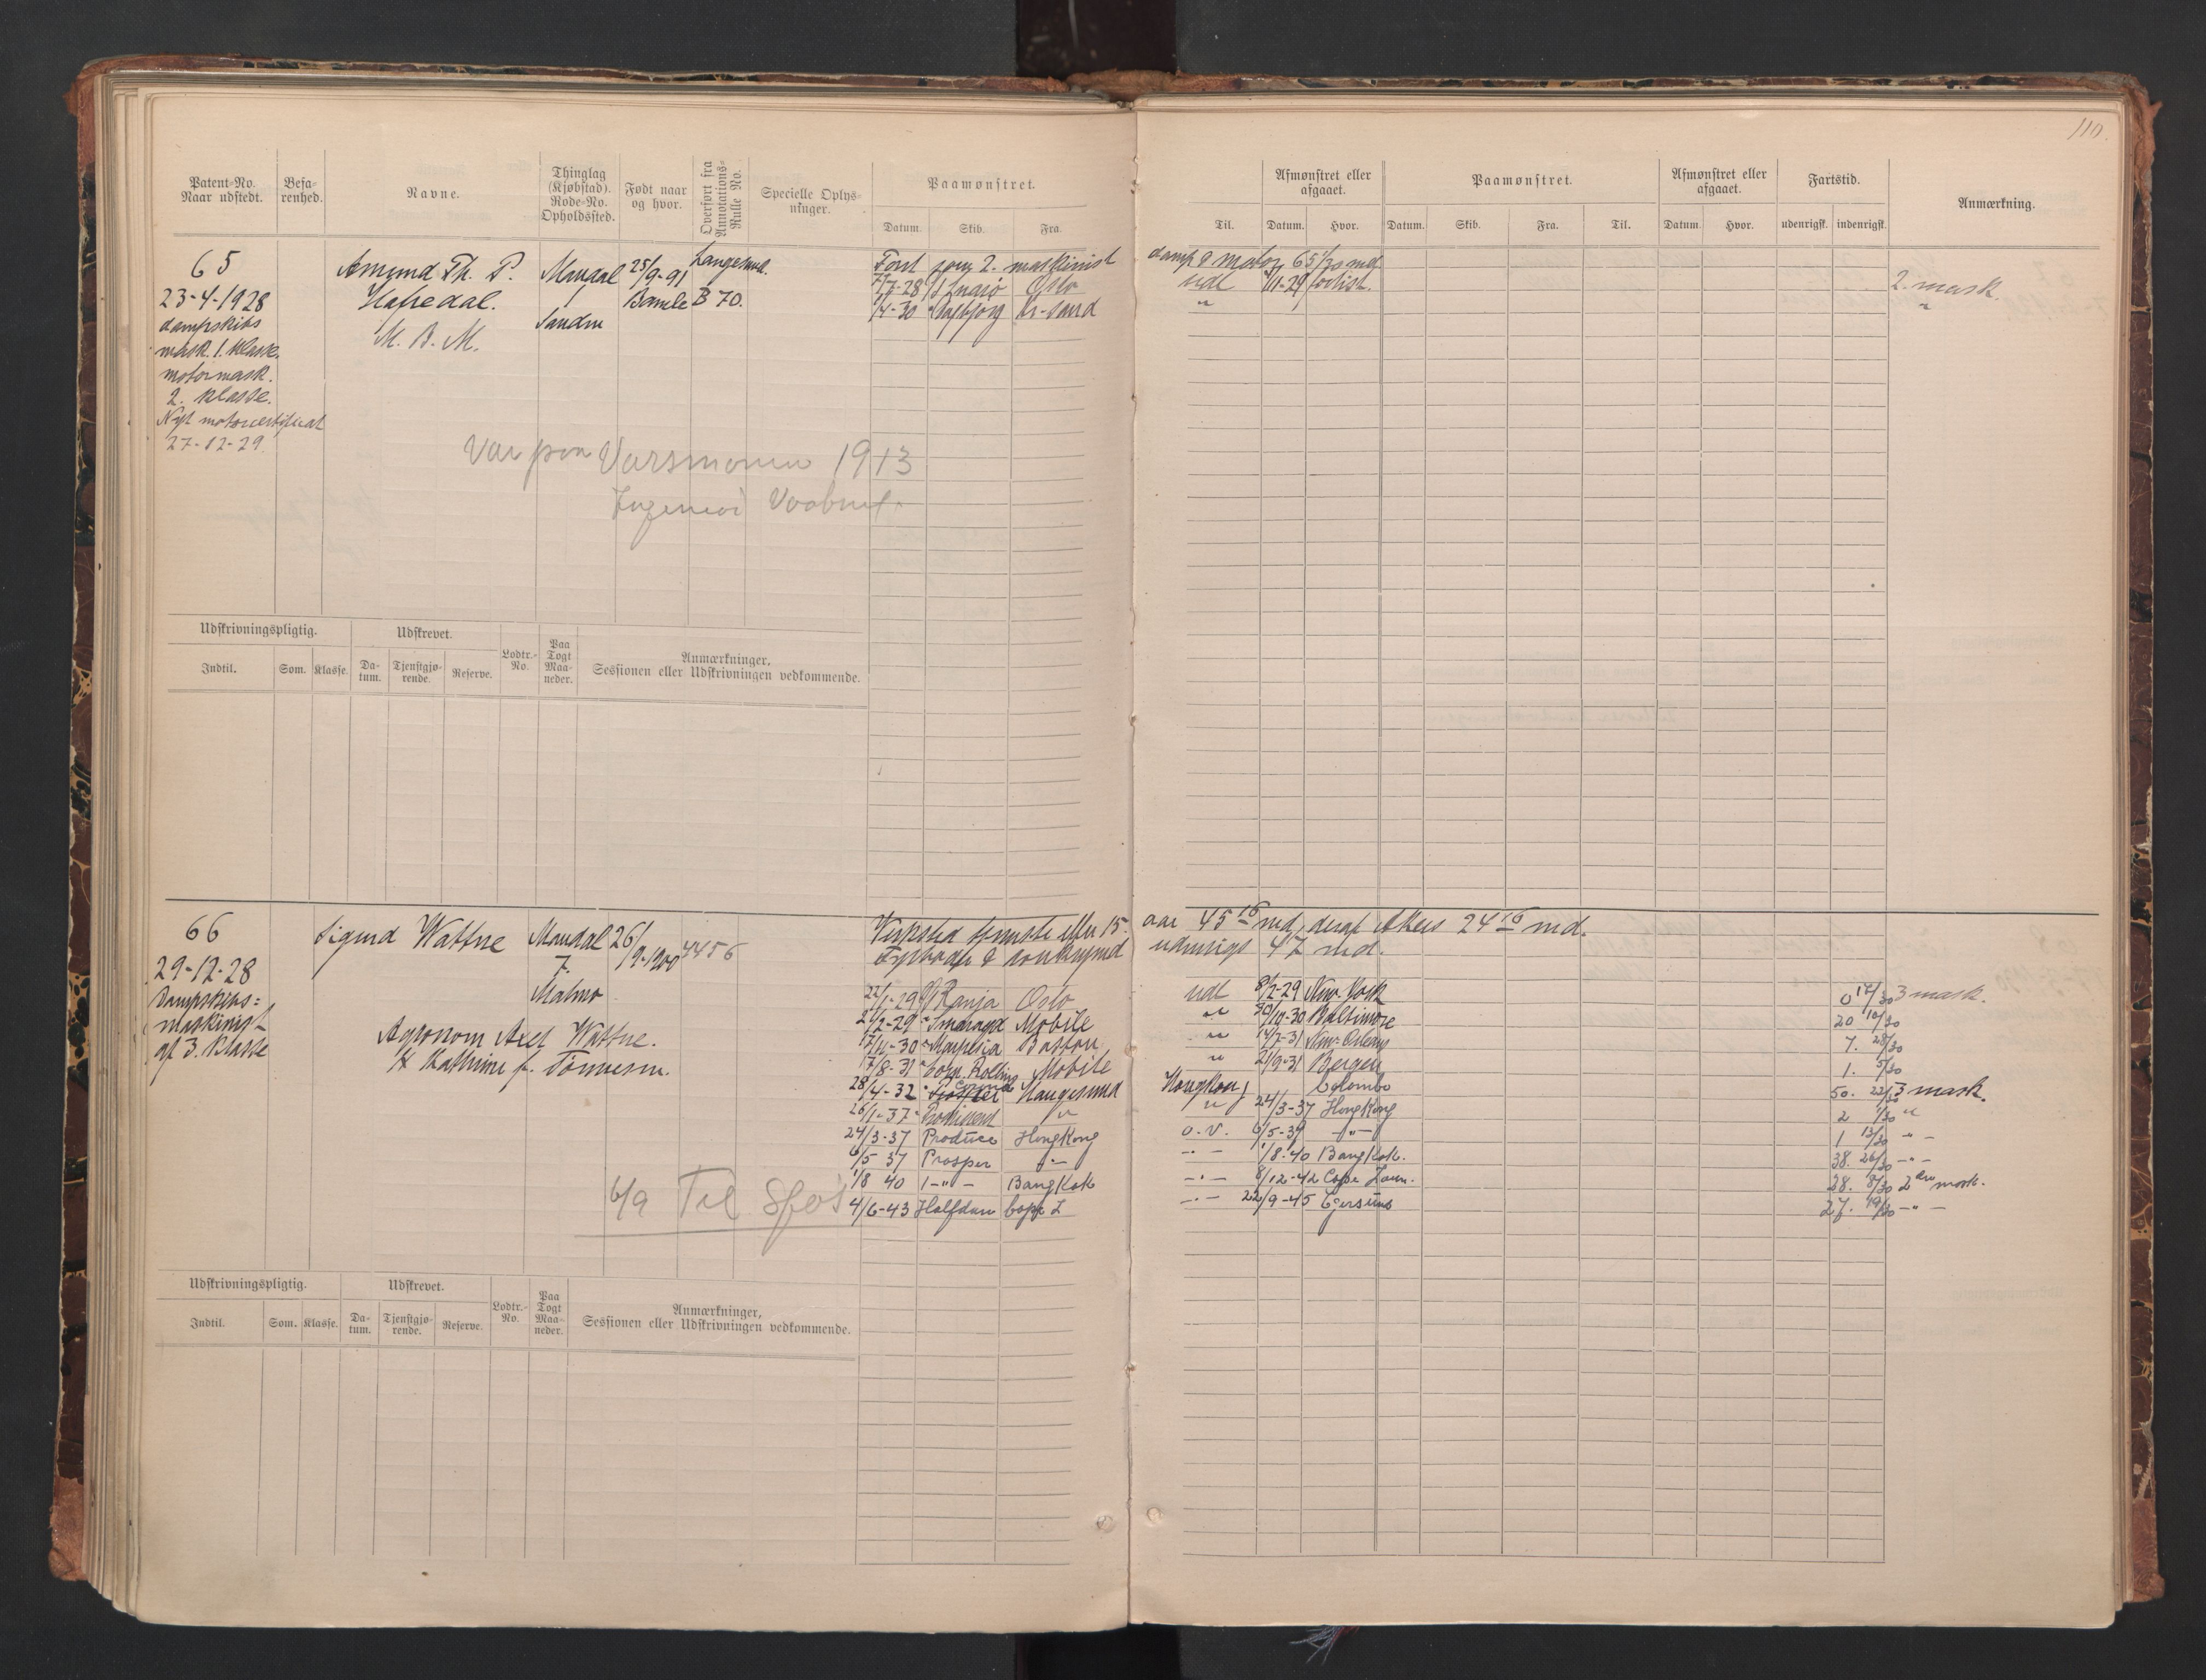 110.
Patent-No. Naar udstedt.
Befarenhed.
Navne.
Thinglag (Kjøbstad). Rode-No. Opholdssted.
Født naar og hvor.
Overført fra Annotations-Rulle No.
Specielle Oplysninger.
Paamønstret.
Datum. Skib. Fra.
Til.
Afmønstret eller afgaaet.
Datum. Hvor.
Paamønstret.
Datum. Skib. Fra. Til.
Afmønstret eller afgaaet.
Datum. Hvor.
Fartstid.
udenrigsk. indenrigsk.
Anmærkning.
65
23-4-1928
dampskibs
mask. 1. klasse.
motormask.
2. klasse.
Nyt motorcertifikat
27-12-29.
Amund Th. P.
M. B. M.
Mandal
1
25/9-91
Bamle
Langesund.
B 70.
2. maskinist damp & motor 65
7-28 Oslo ud 11-29 forlist. 2. mask.
4-30 Kr-sand " "
Var paa 1913
Udskrivningspligtig.
Indtil. Som. Klasse.
Udskrevet.
Datum. Tjenstgjørende. Reserve.
Lodtr.-No.
Paa Togt Maaneder.
Anmærkninger, Sessionen eller Udskrivningen vedkommende.
66
29-12-28
Dampskibs=
maskinist
af 3. klasse
Sigurd Wattne
Mandal
7.
Malmø
26/9-1900
4456
Agronom Axel Wattne.
H. Kathrine f. Tønnesen.
Verksted tjeneste efter 15. aar 45 16 md, deraf Akers 24 16 md.
Fyrbøder & donkeymd udenrigs 47 md.
22/1-29 Ranja Oslo ud 8/2-29 New-York 0 17/30 3 mask.
2-29 " Smaragd Mobile " 30/10-30 Baltimore 20 10/30
-30 " Boston " 14/7-31 New-Orleans 7. 28/30
7/8-31 " Mobile " 21/9-31 Bergen 1. 5/30
28/4-32 " Haugesund Hongkong Colombo 50. 22/30 3 mask.
26/1-37 " " " 24/3-37 Hongkong 2 1/30 "
24/3-37 Produce Hongkong o.v. 6/5-37 -"- 1 13/30 -"-
6/5 37 Prosper -"- -"- 1/8-40 Bangkok. 38. 26/30 -"-
1/8 40 -"- Bangkok -"- 8/12-42 Cape Town. 28. 8/30 2den mask.
4/6-43 Halfdan Cape T -"- 22/9-45 Egersund 27. 19/30 -"-
6/9 Til Sfos
Udskrivningspligtig.
Indtil. Som. Klasse.
Udskrevet.
Datum. Tjenstgjørende. Reserve.
Lodtr.-No.
Paa Togt Maaneder.
Anmærkninger, Sessionen eller Udskrivningen vedkommende.